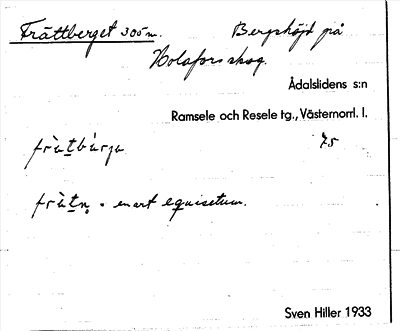 Frättberget 300 m. Bergshöjd på
Holafors skog.
Ådalslidens s:n
Ramsele och Resele tg., Västernorrl. l.
frä̀tbárja 75
frä̀tn̥ = en art equisetum.
Sven Hiller 1933